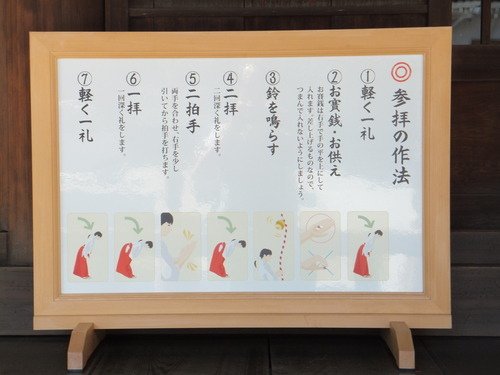 ◎参拝の作法
①軽く一礼
②お賽銭・お供え
お賽銭は右手で手の平を上にして
入れます。差し上げるものなので、
つまんで入れないようにしましょう。
③鈴を鳴らす
④二拝
二回深く礼をします。
⑤二拍手
両手を合わせ、右手を少し
引いてから拍手を打ちます。
⑥一拝
一回深く礼をします。
⑦軽く一礼